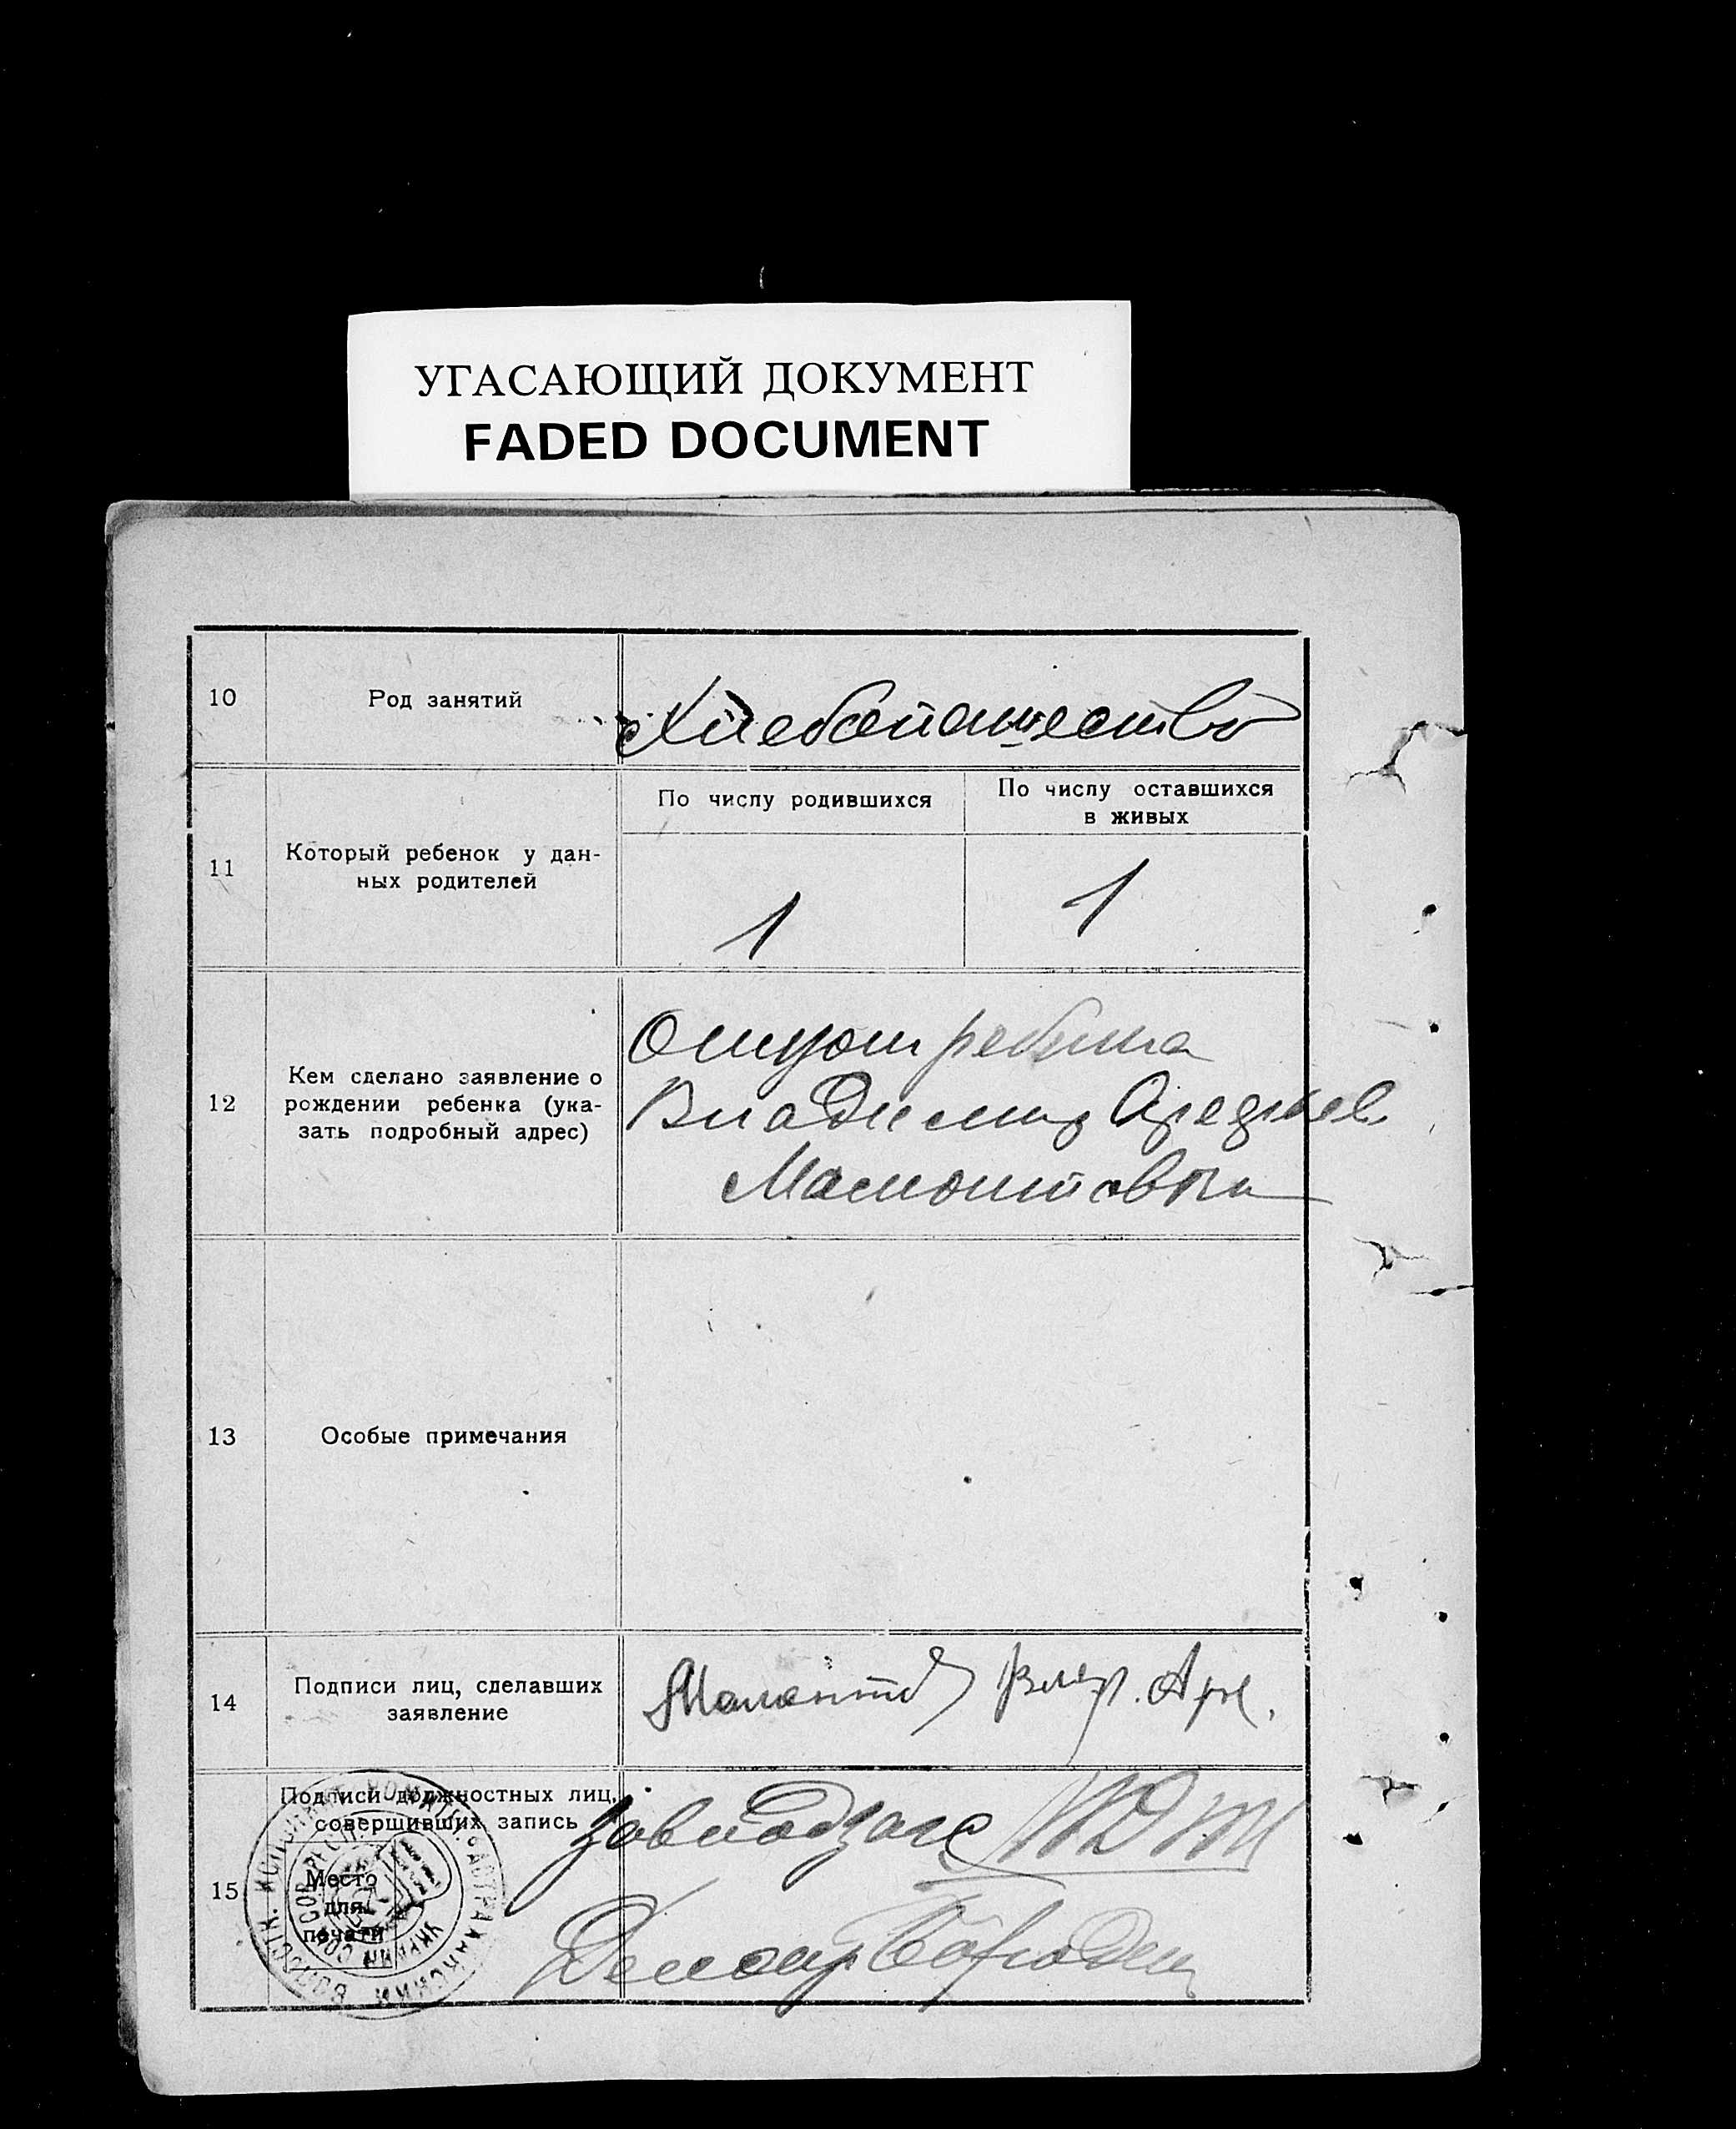 УГАСАЮЩИЙ ДОКУМЕНТ
FADED DOCUMENT
10
Род занятий
Хлебопашество
11
Который ребенок у дан-
ных родителей
По числу родившихся
По числу оставшихся
в живых
1
1
12
Кем сделано заявление о
рождении ребенка (ука-
зать подробный адрес)
Отцом ребенка
Владимир
Мамонтовка
13
Особые примечания
14
Подписи лиц, сделавших
заявление
15
Подписи должностных лиц,
совершивших запись
Место
для
печати
завподзагс
Делопр